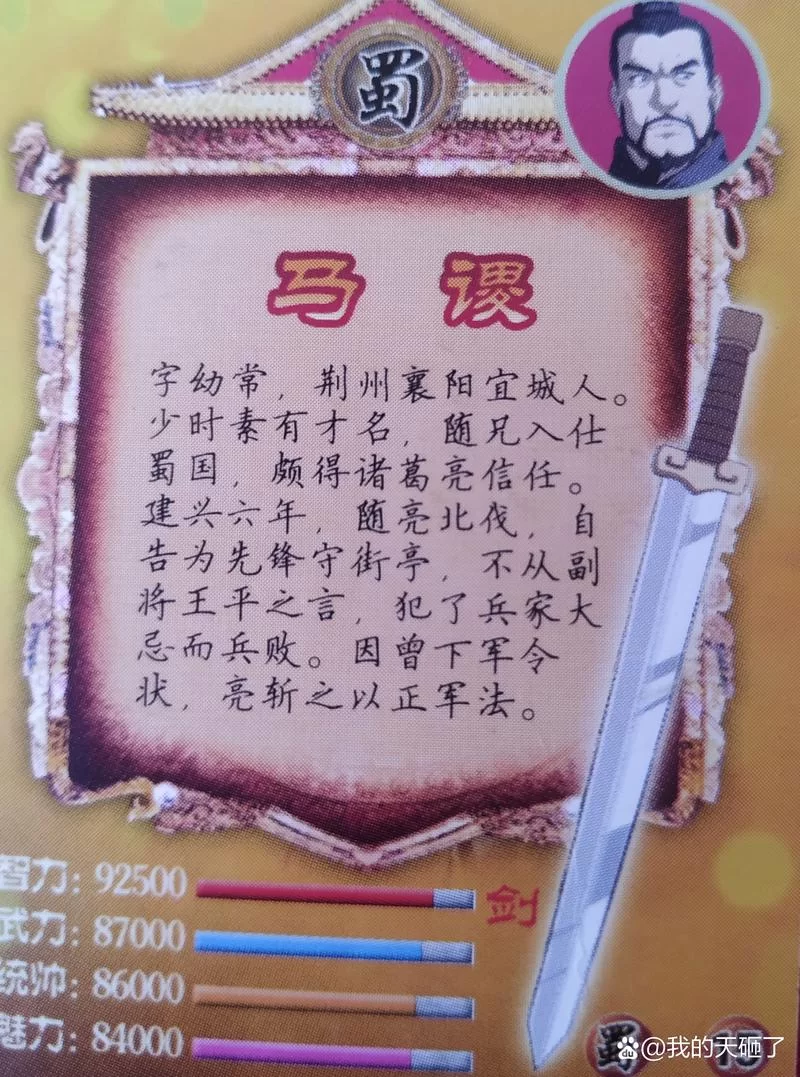 蜀
马谡
字幼常，荆州襄阳宜城人。
少时素有才名，随兄入仕
蜀国，颇得诸葛亮信任。
建兴六年，随亮北伐，自
告为先锋守街亭，不从副
将王平之言，犯了兵家大
忌而兵败。因曾下军令
状，亮斩之以正军法。
智力：92500
武力：87000
统帅：86000
魅力：84000
剑
蜀
@我的天砸了